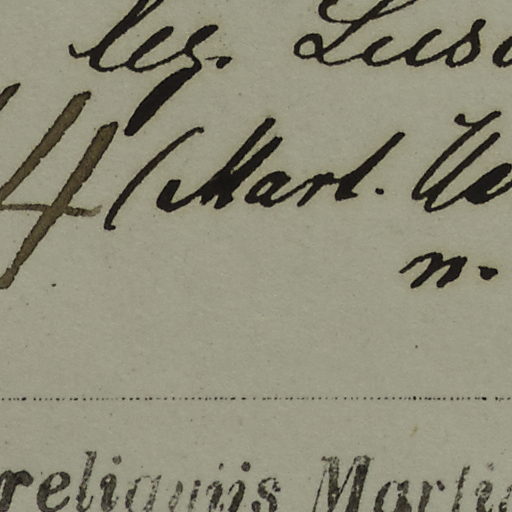 leg. Lus
4 (Mart. He
n.
reliquiis Martii